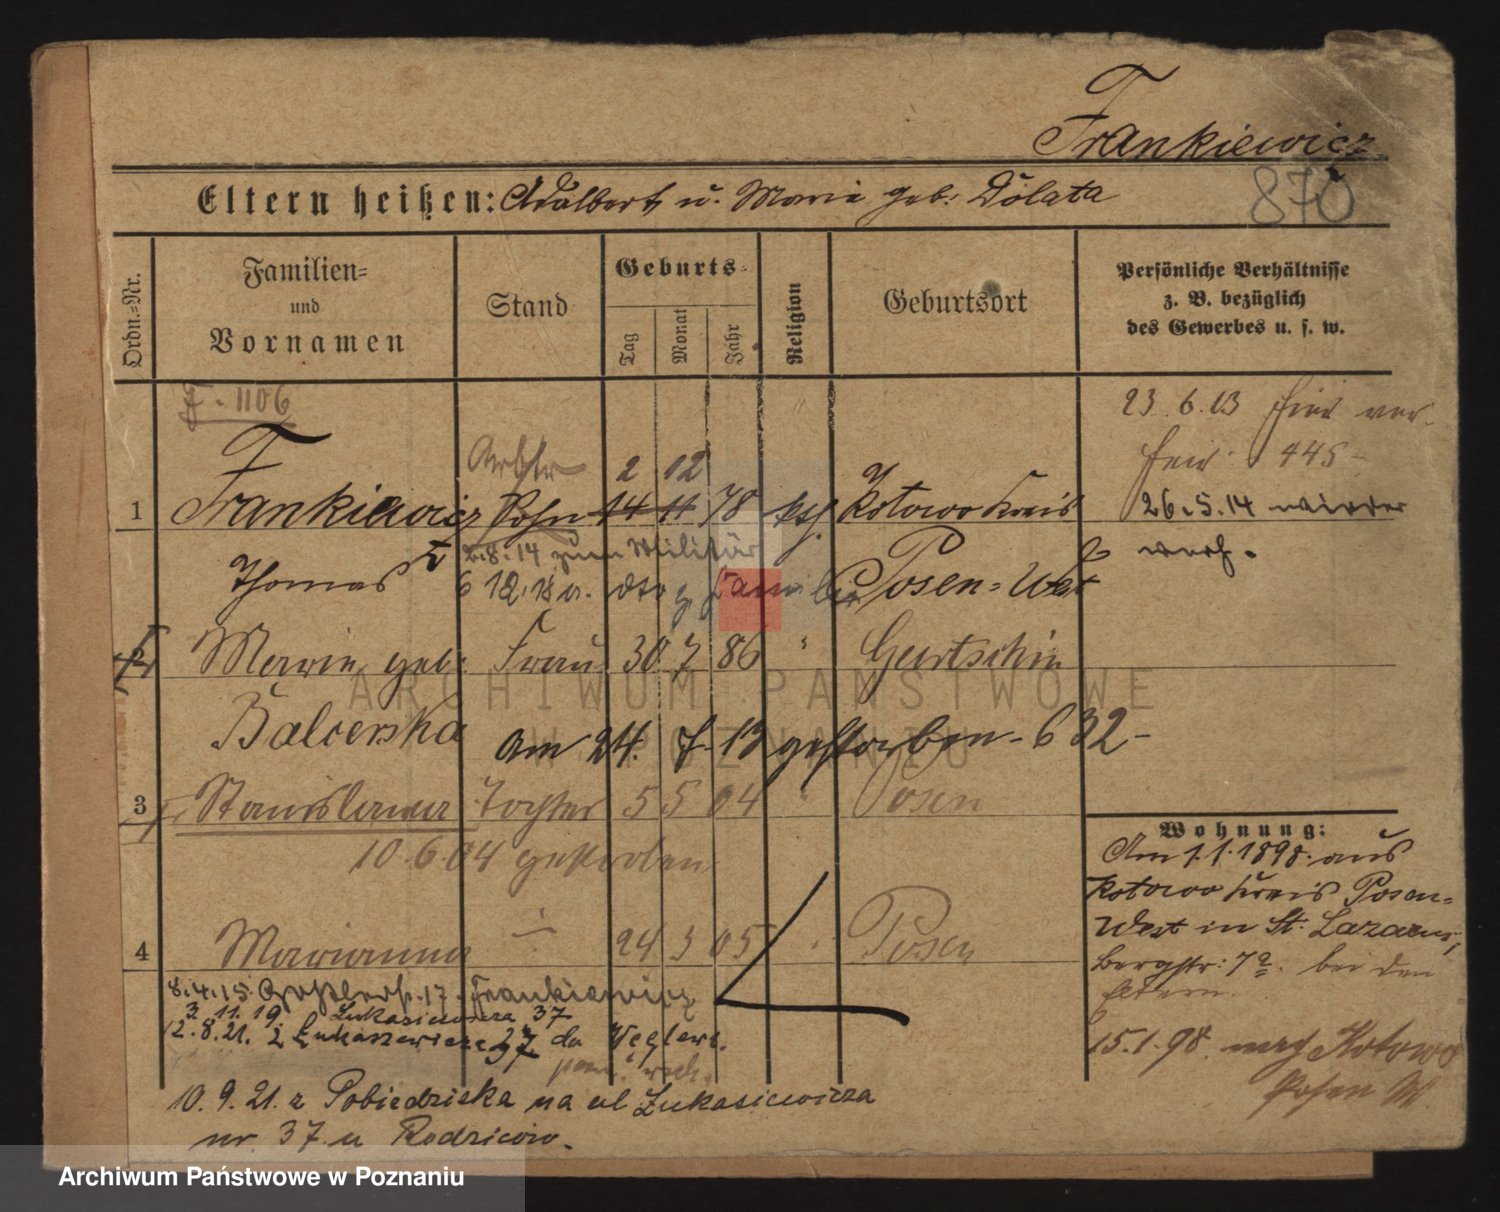 Frankiewicz
870
Eltern heißen: Adalbert u. Marie geb. Dolata
Ordn.-Nr.
Familien-
und
Vornamen
Stand
Geburts-
Tag
Monat
Jahr
Religion
Geburtsort
Persönliche Verhältnisse
z. B. bezüglich
des Gewerbes u. s. w.
F. 1106
23.6.03 hier
445
Arbtr 2 12
1 Frankiewicz Sohn 14 11 78 kth. Kotowo Kreis
26.5.14 wieder
Thomas 2.8.14 zum Militär
Posen-West
verh.
6 12.18
2 Marie geb. Frau 30 7 86 " Gurtschin
Balcerska
am 24. 7. 13 gestorben - 632 -
3 Stanislawa Tochter 5 5 04 " Posen
10.6.04 gestorben
4 Marianna 24 3 05 Posen
8.4.15. Geßlerst. 17. Frankiewicz
3.11.19 Lukasiewicza 37
12.8.21. z Łukaszewicza 37 do Węglew.
10.9.21. z Pobiedziska na ul Łukasiewicza
nr. 37. u Rodziców.
Wohnung:
Am 1.1.1898. aus
Kotowo Kreis Posen-
West in St. Lazarus,
Bergstr: 7a. bei den
Eltern.
15.1.98. nach Kotowo
Posen W.
ARCHIWUM PAŃSTWOWE
W POZNANIU
Archiwum Państwowe w Poznaniu